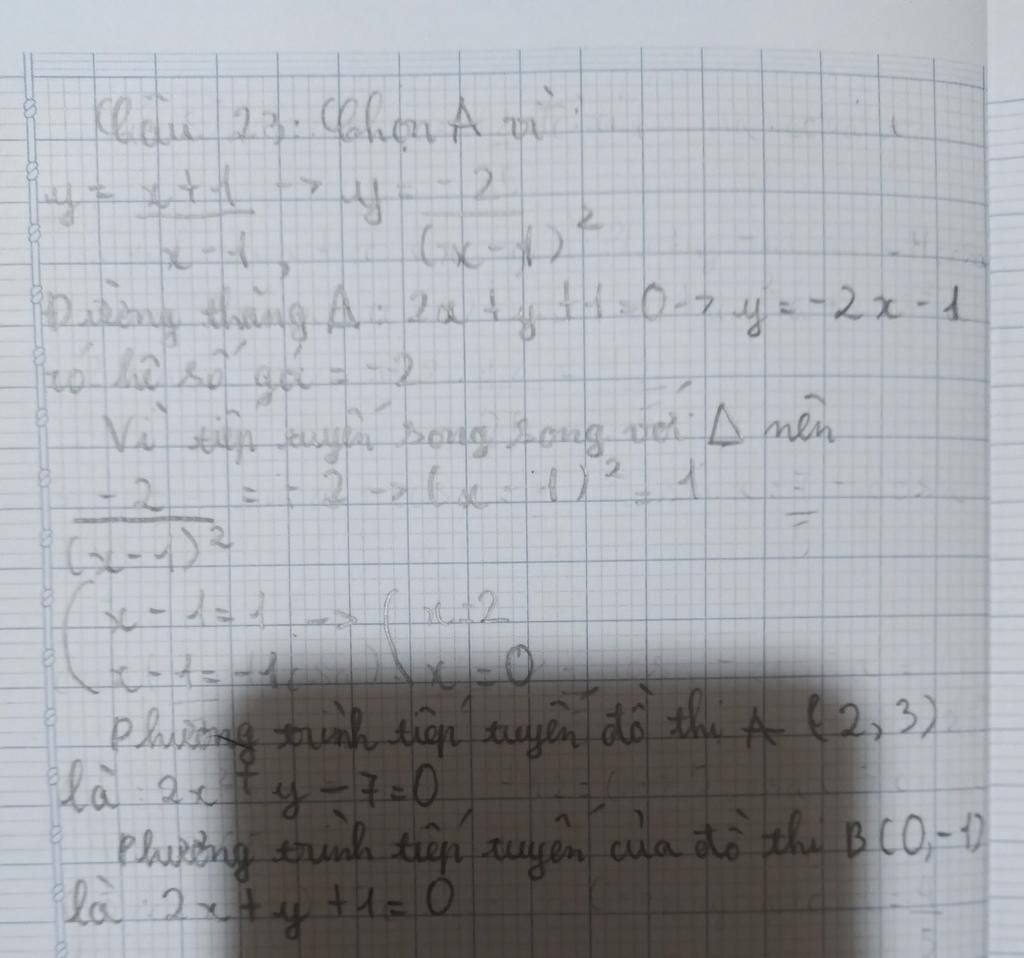 Câu 23: Chọn A vì
y = x+1 / x-1, -> y = -2 / (x-1)²
Đường thẳng Δ: 2x + y + 1 = 0 -> y = -2x - 1
có hệ số góc = -2
Vì tiếp tuyến song song với Δ nên
-2 / (x-1)² = -2 -> (x-1)² = 1
( x - 1 = 1 -> ( x = 2
x - 1 = -1 x = 0
Phương trình tiếp tuyến đồ thị A (2, 3)
là: 2x + y - 7 = 0
Phương trình tiếp tuyến của đồ thị B (0, -1)
là: 2x + y + 1 = 0